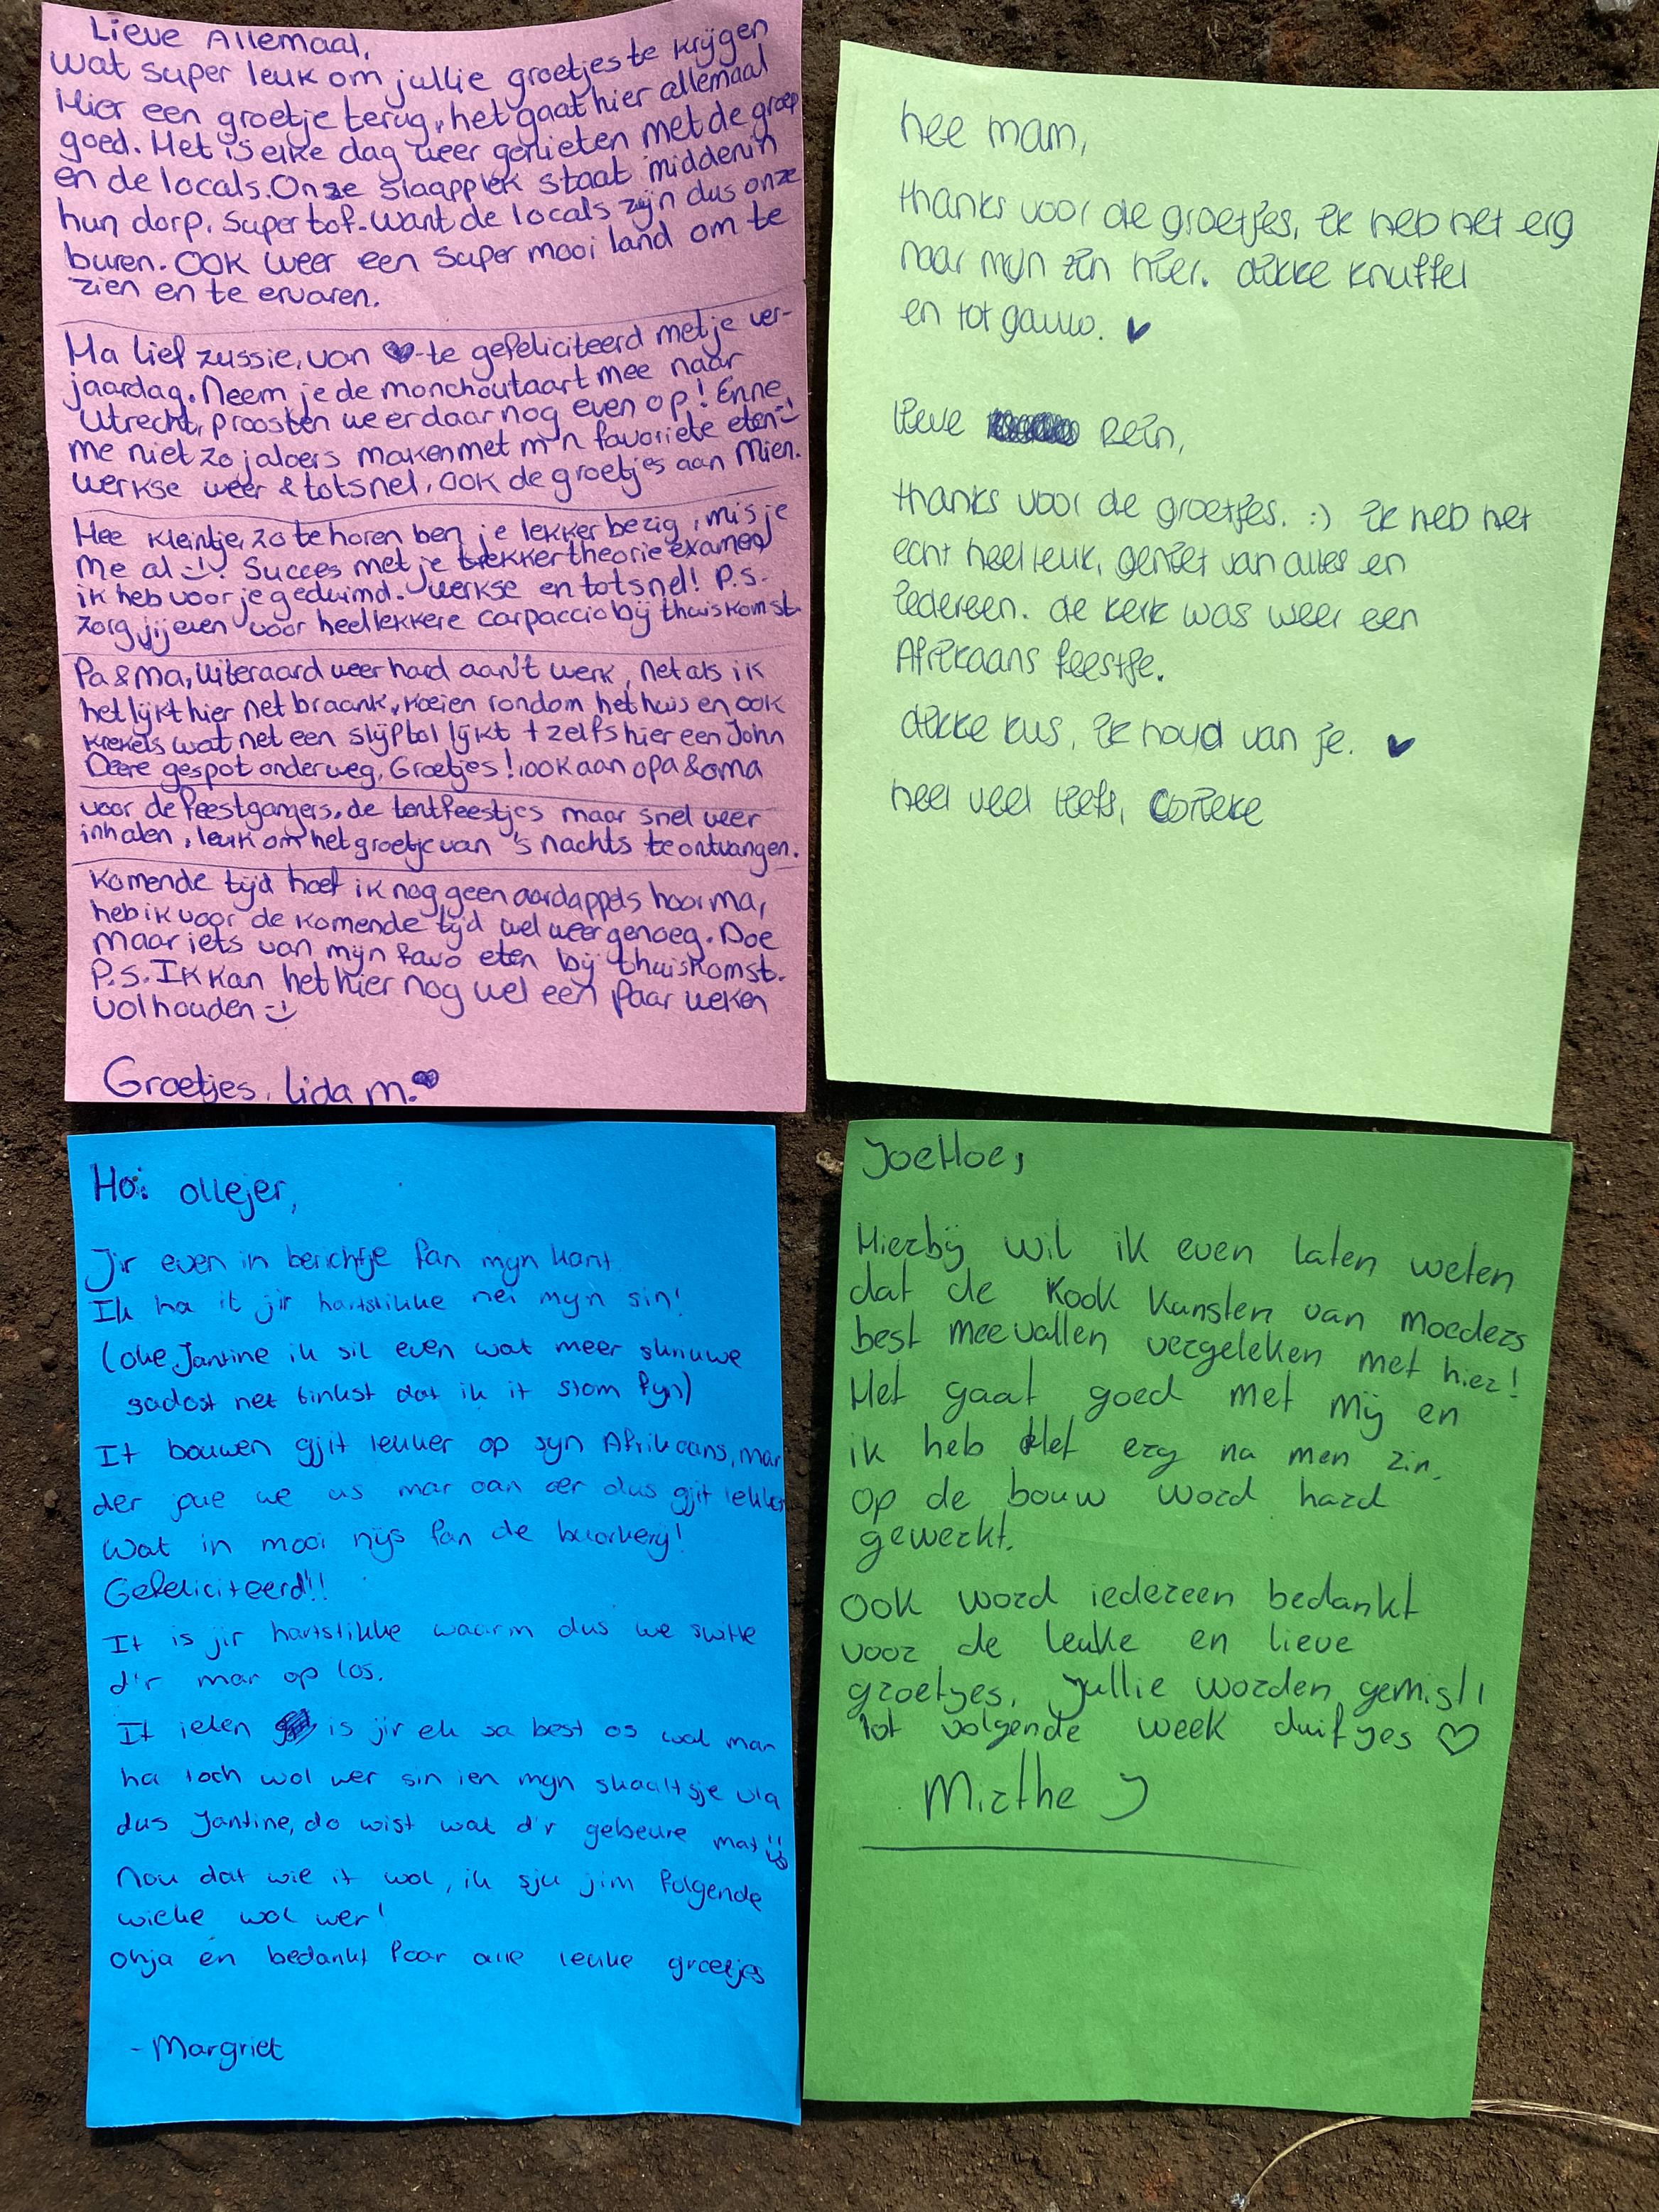 Lieve Allemaal,
wat super leuk om jullie groetjes te krijgen
Hier een groetje terug, het gaat hier allemaal
goed. Het is elke dag weer genieten met de groep
en de locals. Onze slaapplek staat middenin
hun dorp. Super tof. want de locals zijn dus onze
buren. OOK weer een super mooi land om te
zien en te ervaren.
Ha lief zussie, van ♥-te gefeliciteerd met je ver-
jaardag. Neem je de monchoutaart mee naar
Utrecht, proosten we er daar nog even op! Enne
me niet zo jaloers maken met m'n favoriete eten :)
werkse weer & tot snel, ook de groetjes aan Mien.
Hee kleintje, zo te horen ben je lekker bezig, mis je
me al :)? Succes met je trekkertheorie examen,
ik heb voor je geduimd. werkse en tot snel! P.s.
zorg jij even voor heel lekkere carpaccio bij thuiskomst.
Pa & ma, Uiteraard weer hard aan't werk, net als ik
het lijkt hier net braank, koeien rondom het huis en ook
krekels wat net een slijptol lijkt + zelfs hier een John
Deere gespot onderweg, Groetjes! ook aan opa & oma
voor de feestgangers, de tentfeestjes maar snel weer
inhalen, leuk om het groetje van 's nachts te ontvangen.
Komende tijd hoef ik nog geen aardappels hoor ma,
heb ik voor de komende tijd wel weer genoeg. Doe
maar iets van mijn favo eten bij thuiskomst.
P.S. IK kan het hier nog wel een paar weken
volhouden :)
Groetjes, Lida M. ♥
hee mam,
thanks voor de groetjes, ik heb het erg
naar mijn zin hier. dikke knuffel
en tot gauw. ♥
lieve Rein,
thanks voor de groetjes. :) ik heb het
echt heel leuk, geniet van alles en
iedereen. de kerk was weer een
Afrikaans feestje.
dikke kus, ik houd van je. ♥
heel veel liefs, Corieke
Hoi ollejer,
J'ir even in berichtje fan myn kant
Ik ha it jir hartstikke nei myn sin!
(oke Jantine ik sil even wat meer skriuwe
sadast net tinkst dat ik it stom fyn)
It bouwen gjit lekker op syn Afrikaans, mar
der jaue we us mar aan oer dus gjit lekker
Wat in mooi nijs fan de buorkerij!
Gefeliciteerd!!
It is jir hartstikke waarm dus we switte
d'r mar op los.
It ieten is jir ek sa best os wol mar
ha toch wol wer sin ien myn skaaltsje vla
dus Jantine, do wist wat d'r gebeure mat!!
Nou dat wie it wol, ik sju jim folgende
wieke wol wer!
ohja en bedankt foar alle leuke groetjes
- Margriet
JoeHoe,
Hierbij wil ik even laten weten
dat de kook kunsten van moeders
best meevallen vergeleken met hier!
Het gaat goed met mij en
ik heb het erg na men zin.
op de bouw word hard
gewerkt.
Ook word iedereen bedankt
voor de leuke en lieve
groetjes, jullie worden gemist!
Tot volgende week duifjes ♡
Mirthe J